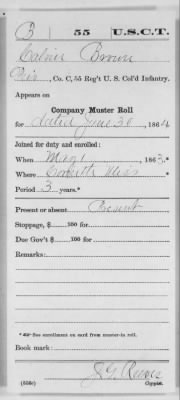 B 55 U.S.C.T.
Calvin Brown
Pvt, Co. C, 55 Reg't U. S. Col'd Infantry.
Appears on
Company Muster Roll
for dated June 30, 1864
Joined for duty and enrolled:
When May 1, 1863.*
Where Corinth Miss
Period 3 years.*
Present or absent Present
Stoppage, $ 100 for
Due Gov't $ 100 for
Remarks:
* See enrollment on card from muster-in roll.
Book mark:
J. G. Reeves
(358c) Copyist.